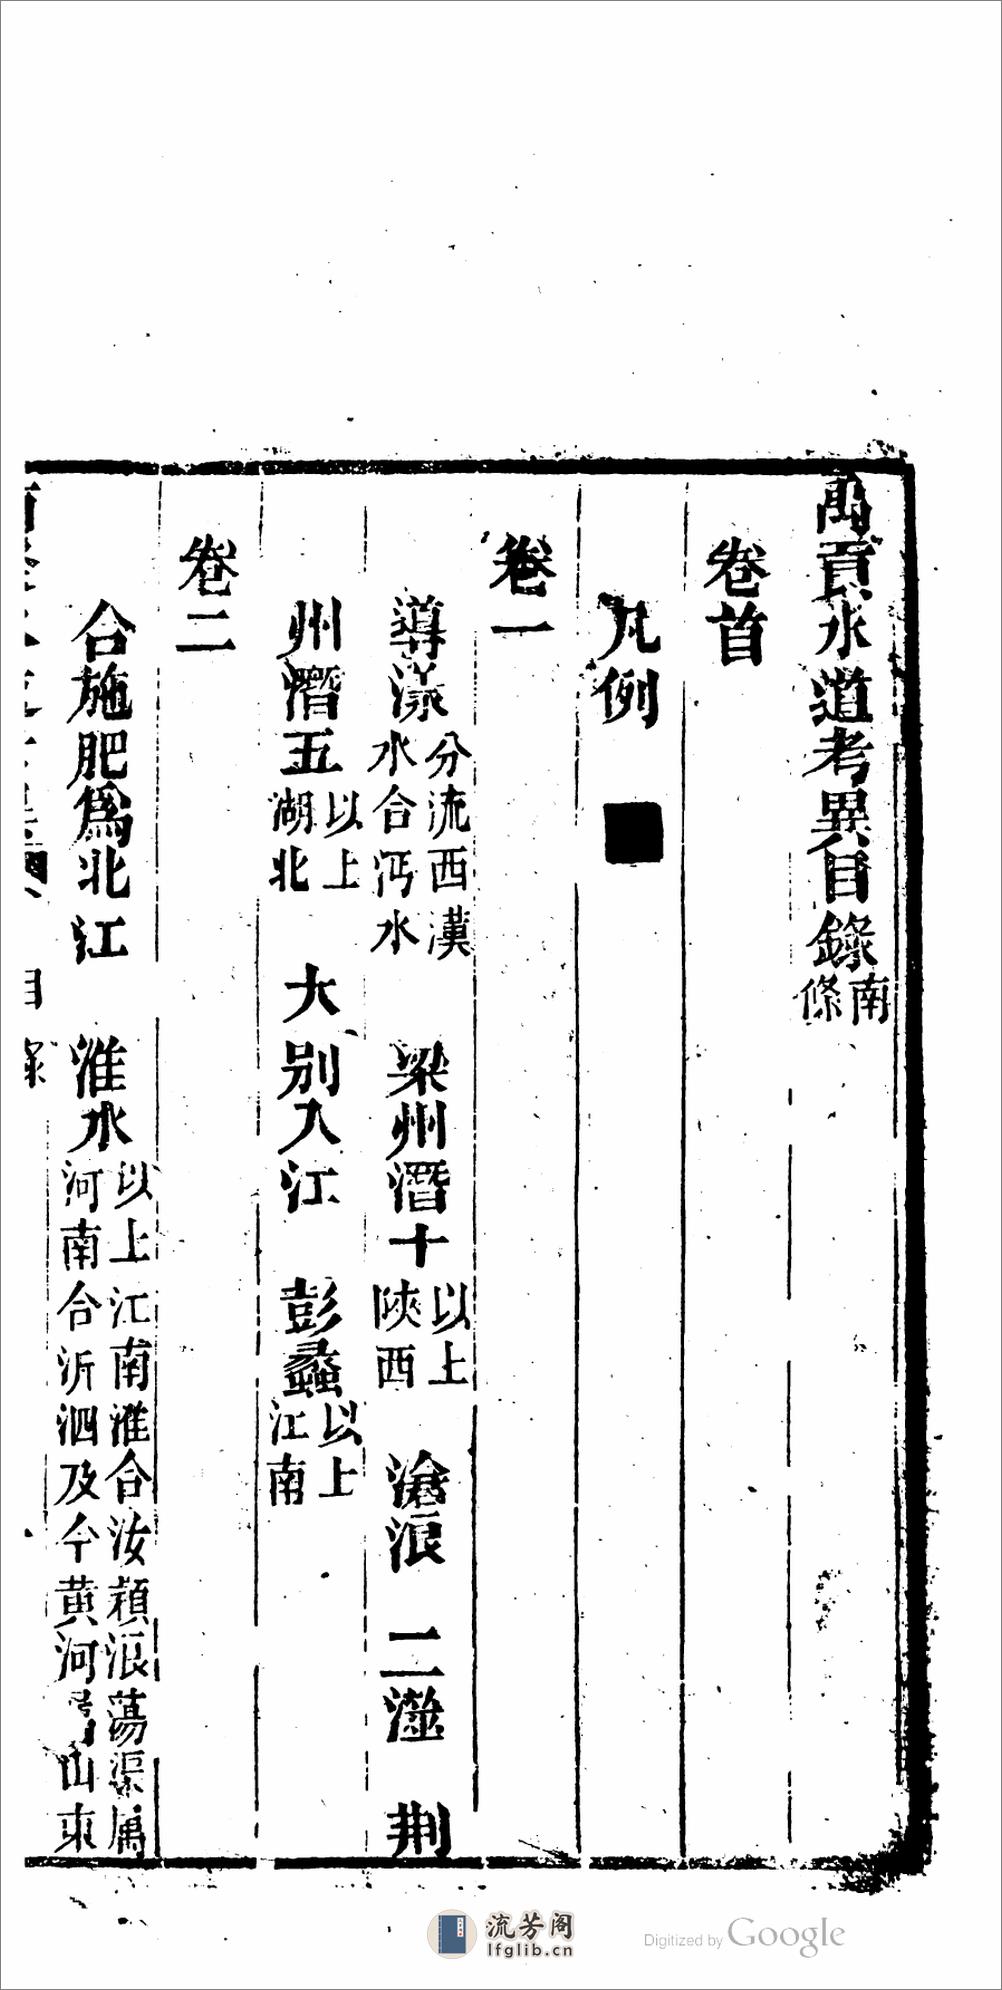 禹貢水道考異目錄南條
卷首
凡例
卷一
導漾分流西漢水合沔水　梁州潛十以上陝西　滄浪　二澨　荆
州潛五以上湖北　大別入江　彭蠡以上江南
卷二
合施肥爲北江　淮水以上江南淮合汝潁浪蕩渠屬河南合沂泗及今黃河屬山東
目錄
流芳阁
lfglib.cn
Digitized by Google